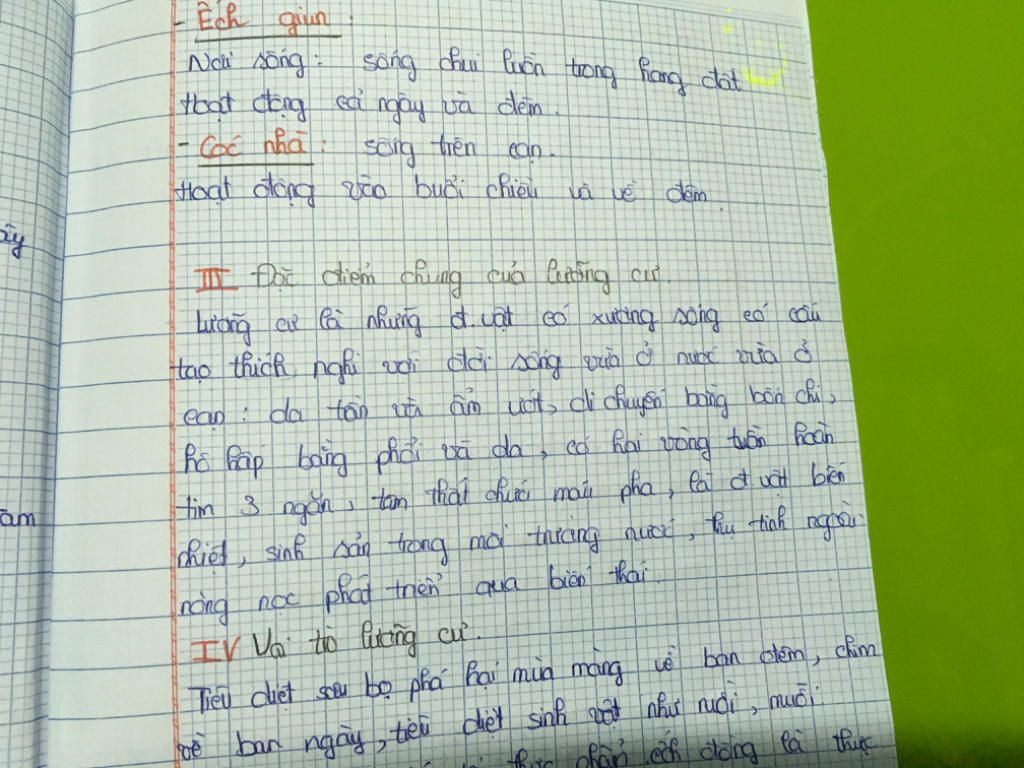 - Ếch giun:
Nơi sống: sống chui luồn trong hang đất
Hoạt động cả ngày và đêm.
- Cóc nhà: sống trên cạn.
Hoạt động vào buổi chiều và về đêm
III Đặc điểm chung của lưỡng cư.
Lưỡng cư là những đ.vật có xương sống có cấu
tạo thích nghi với đời sống vừa ở nước vừa ở
cạn: da trần và ẩm ướt, di chuyển bằng bốn chi,
hô hấp bằng phổi và da, có hai vòng tuần hoàn
tim 3 ngăn, tâm thất chứa máu pha, là đ vật biến
nhiệt, sinh sản trong môi trường nước, thụ tinh ngoài
nòng nọc phát triển qua biến thái.
IV Vai trò lưỡng cư.
Tiêu diệt sâu bọ phá hại mùa màng về ban đêm, chim
về ban ngày, tiêu diệt sinh vật như ruồi, muỗi
thực phẩm ếch đồng là thực
ây
âm